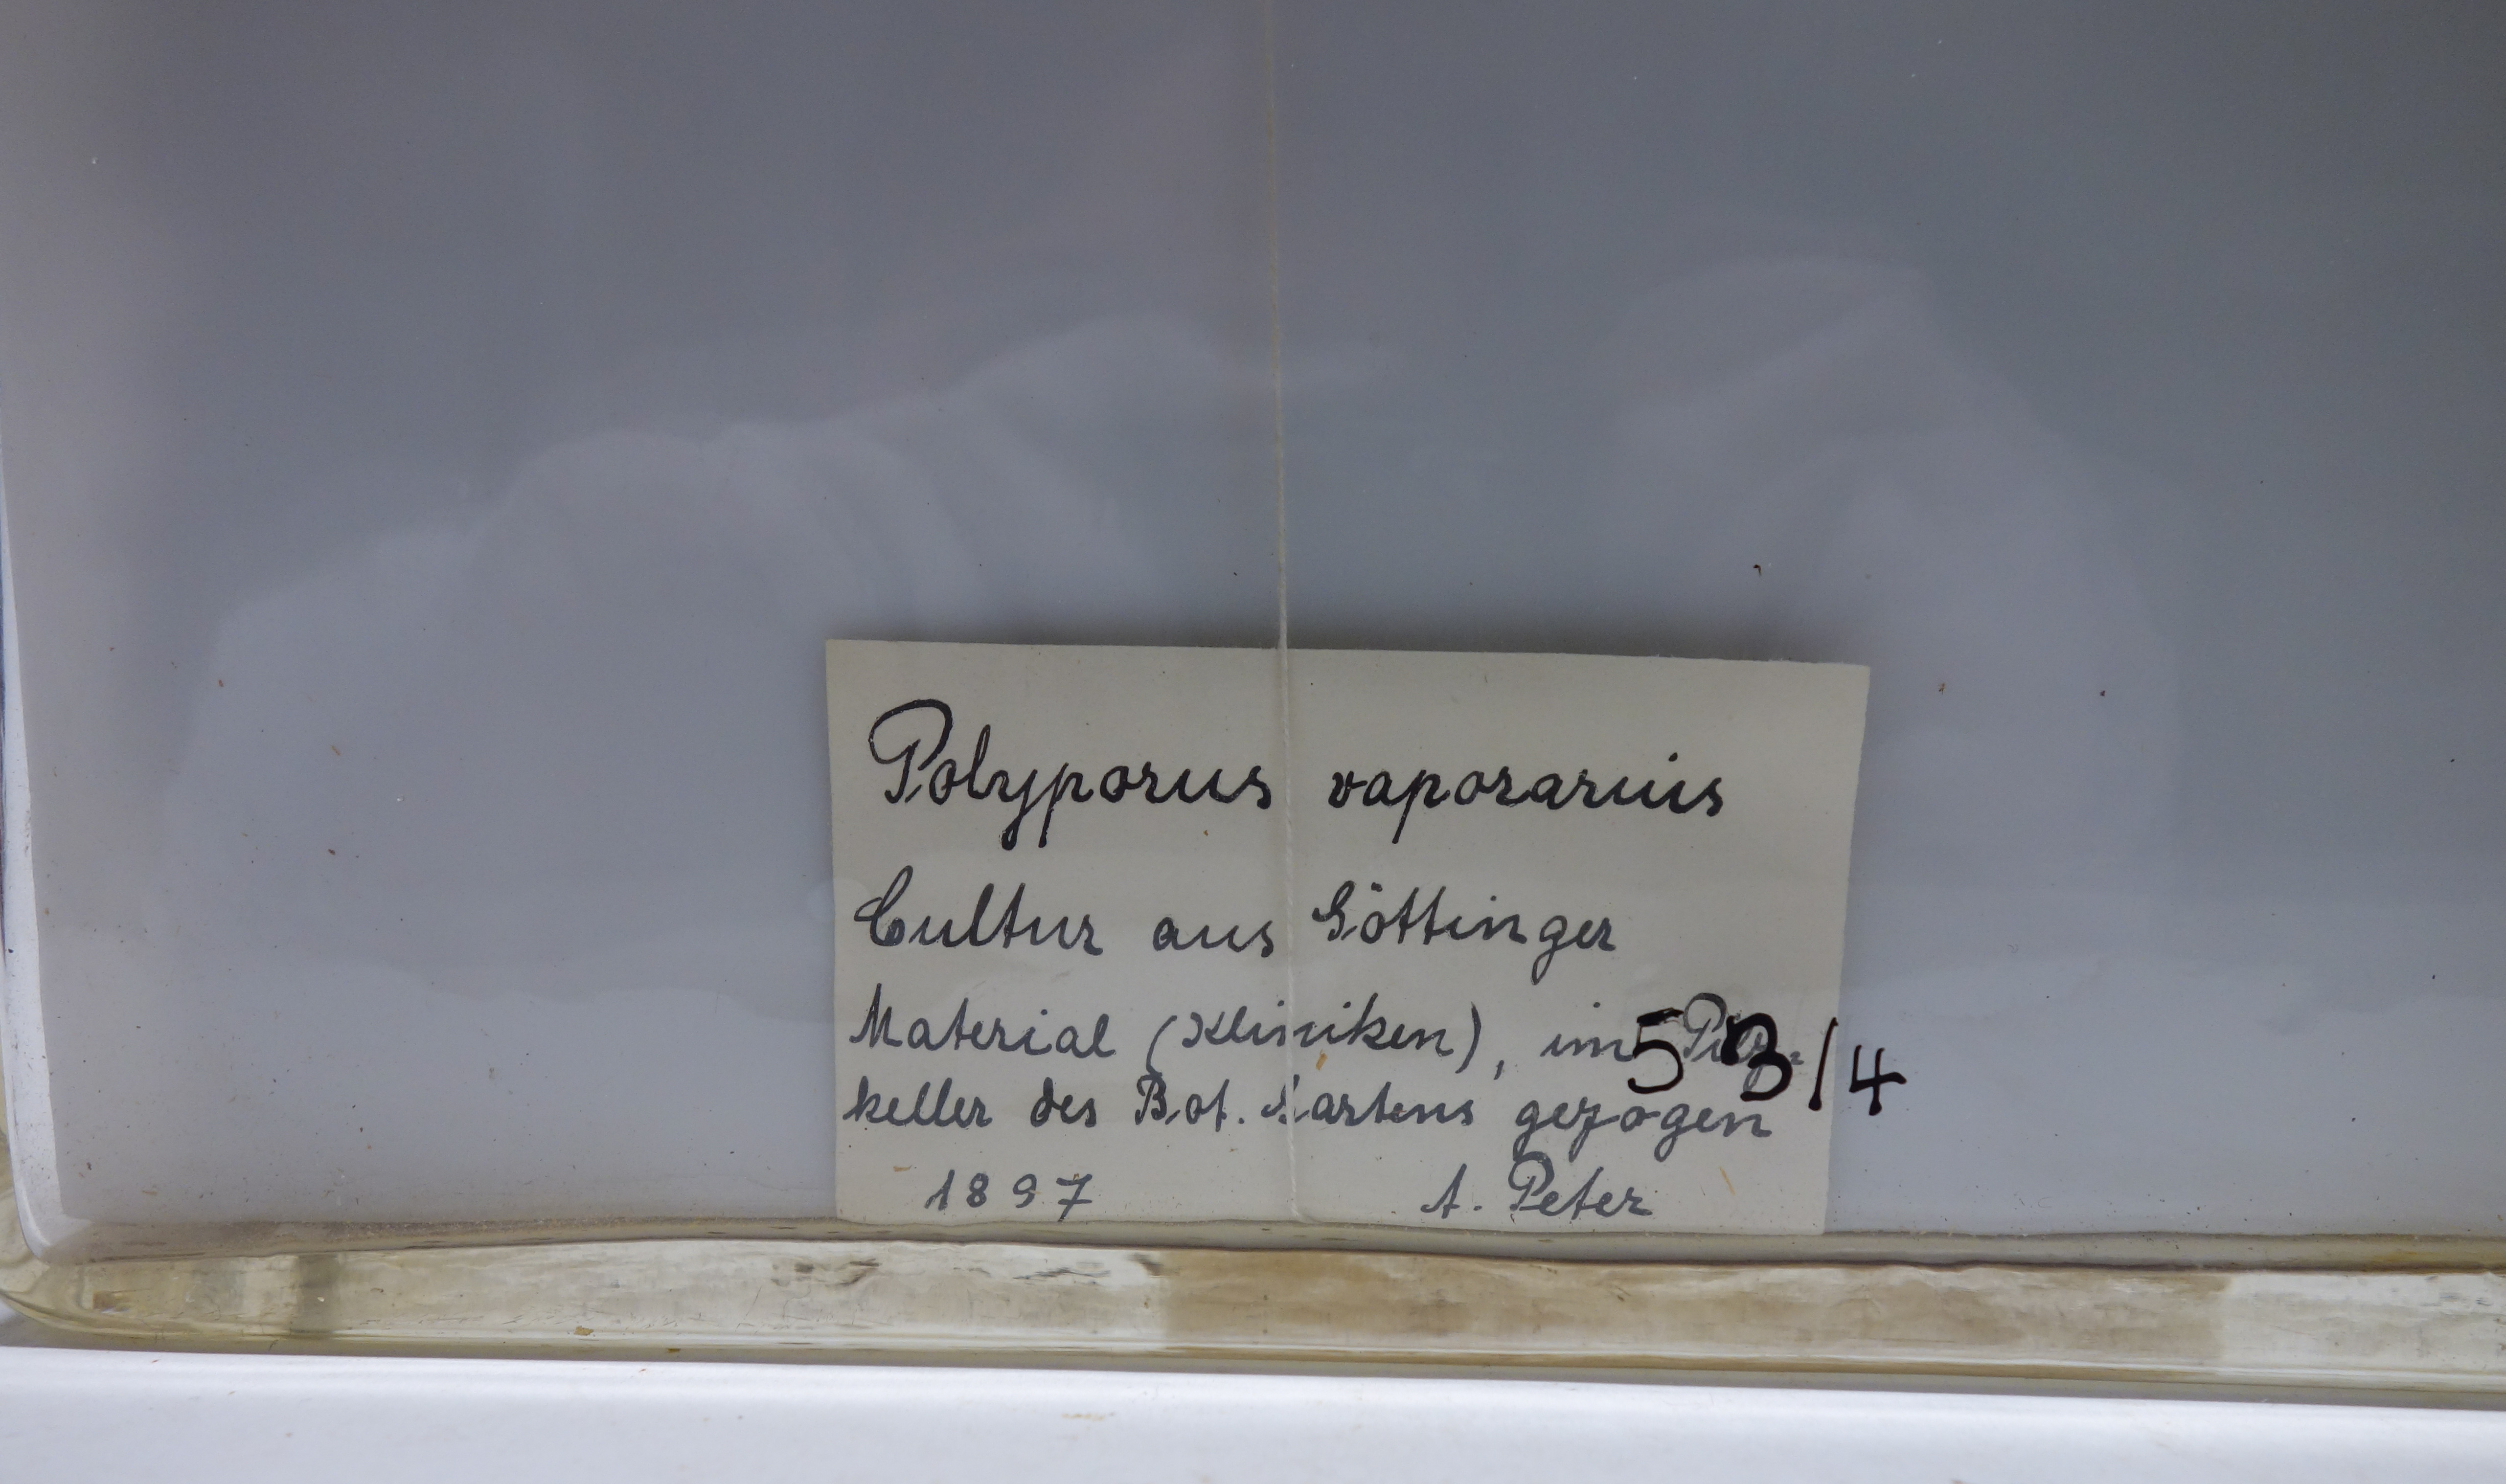 Polyporus vaporarius
Cultur aus Göttinger
Material (Kliniken), im Pilz-
keller des Bot. Gartens gezogen
1897 A. Peter
53/4